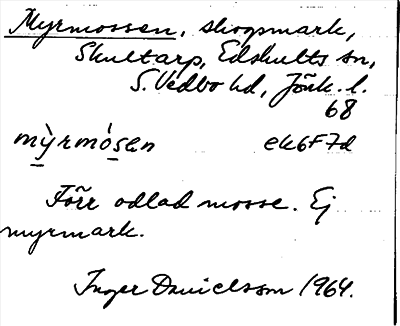 Myrmossen, skogsmark,
Skultarp, Edshults sn,
S. Vedbo hd, Jönk. l.
68
mỳrmósan ek6F7d
Förr odlad mosse. Ej
myrmark.
Inger Danielsson 1964.